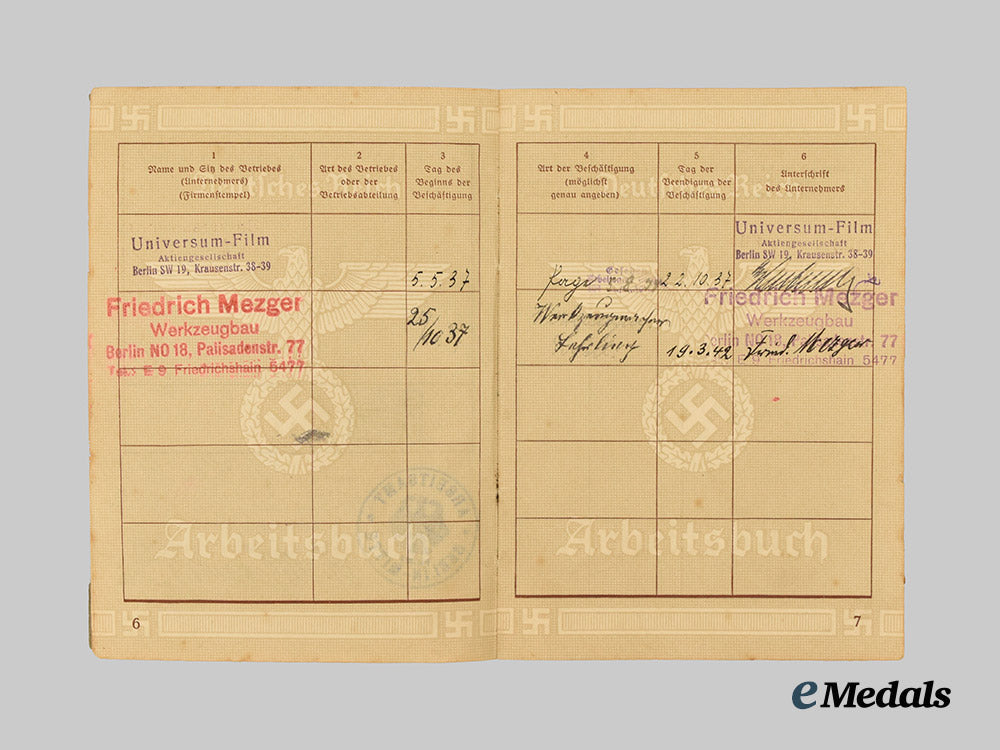 1
Name und Sitz des Betriebes
(Unternehmers)
(Firmenstempel)
2
Art des Betriebes
oder der
Betriebsabteilung
3
Tag des
Beginns der
Beschäftigung
Deutsches Reich
Universum-Film
Aktiengesellschaft
Berlin SW 19, Krausenstr. 38-39
5.5.37
Friedrich Mezger
Werkzeugbau
Berlin NO 18, Palisadenstr. 77
Tel.: E 9 Friedrichshain 5477
25/10 37
ARBEITSAMT
Arbeitsbuch
6
4
Art der Beschäftigung
(möglichst
genau angeben)
5
Tag der
Beendigung der
Beschäftigung
6
Unterschrift
des Unternehmers
Deutsches Reich
Universum-Film
Aktiengesellschaft
Berlin SW 19, Krausenstr. 38-39
Page
22.10.37
Friedrich Mezger
Werkzeugbau
Berlin NO 18, 77
E 9 Friedrichshain 5477
Werkzeugmacher
Lehrling
19.3.42
Fried. Mezger
Arbeitsbuch
7
eMedals